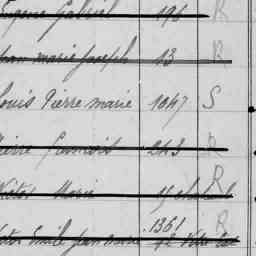 Eugène Gabriel 196 R
Jean Marie Joseph 13 R
Louis Pierre Marie 1047 S
Pierre François 243 R
Victor Marie R
1361 R
Emile Jean Marie